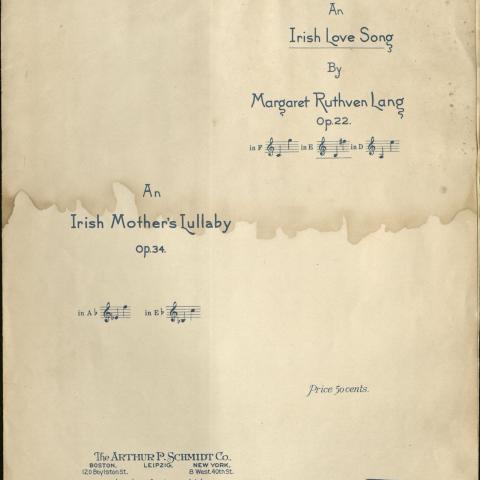 An
Irish Love Song
By
Margaret Ruthven Lang
Op.22.
in F in E in D
An
Irish Mother's Lullaby
Op.34.
in A♭ in E♭
Price 50 cents.
The ARTHUR P. SCHMIDT CO.,
BOSTON, LEIPZIG, NEW YORK,
120 Boylston St. 8 West 40th St.